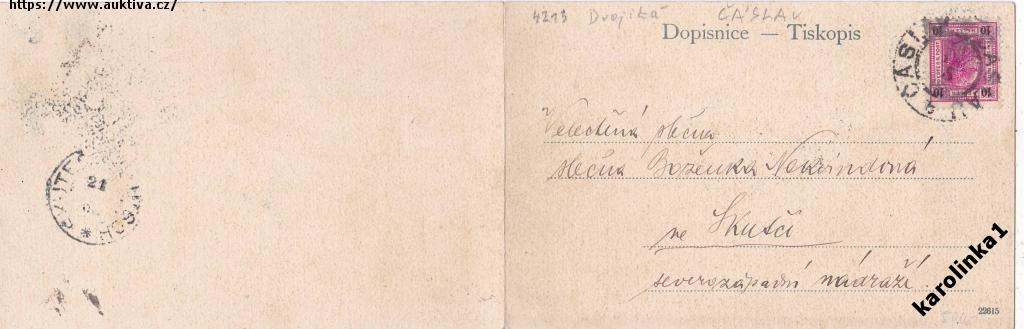 https://www.auktiva.cz/
4213 Dvojitá ČÁSLAV
Dopisnice — Tiskopis
10 10
10 10
ČÁSLAV
ČASLAU
Velectěná slečna
slečna Boženka Nekvindová
ve Skutči
severozápadní nádraží
21
22615
karolinka1